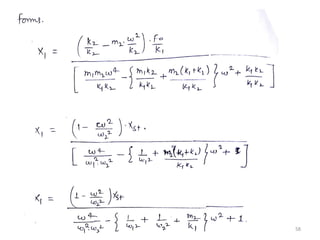 forms.
X₁ = (k₂/k₂ − m₂·ω²/k₂)·F₀/k₁
[m₁m₂ω⁴/k₁k₂ − {m₁k₂/k₁k₂ + m₂(k₁+k₂)/k₁k₂}ω² + k₁k₂/k₁k₂]
X₁ = (1 − ω²/ω₂²)·Xst.
[ω⁴/ω₁²·ω₂² − {1/ω₁² + m₂(k₁+k₂)/k₁k₂}ω² + 1]
X₁ = (1 − ω²/ω₂²)Xst
ω⁴/ω₁²·ω₂² − {1/ω₁² + 1/ω₂² + m₂/k₁}ω² + 1.
58